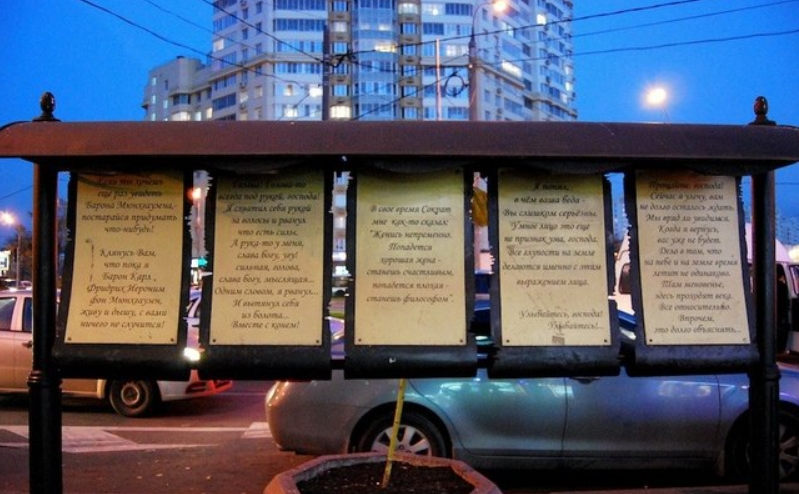 Если ты хочешь
еще раз увидеть
Барона Мюнхгаузена,
постарайся придумать
что-нибудь!
Клянусь Вам,
что пока я
Барон Карл
Фридрих Иероним
фон Мюнхгаузен,
живу и дышу, с вами
ничего не случится!
Голова-то
всегда под рукой, господа!
Я схватил себя рукой
за волосы и рванул
что есть силы.
А рука-то у меня,
слава богу, ууу!
сильная, голова,
слава богу, мыслящая...
Одним словом, я рванул...
И вытянул себя
из болота...
Вместе с конем!
В свое время Сократ
мне как-то сказал:
"Женись непременно.
Попадется
хорошая жена -
станешь счастливым,
попадется плохая -
станешь философом"
Я понял,
в чём ваша беда -
Вы слишком серьёзны.
Умное лицо это еще
не признак ума, господа.
Все глупости на земле
делаются именно с этим
выражением лица.
Улыбайтесь, господа!
Улыбайтесь!...
Прощайте, господа!
Сейчас я улечу, вам
не долго осталось ждать.
Мы вряд ли увидимся.
Когда я вернусь,
вас уже не будет.
Дело в том, что
на небе и на земле время
летит не одинаково.
Там мгновенье,
здесь проходят века.
Все относительно.
Впрочем,
это долго объяснять...